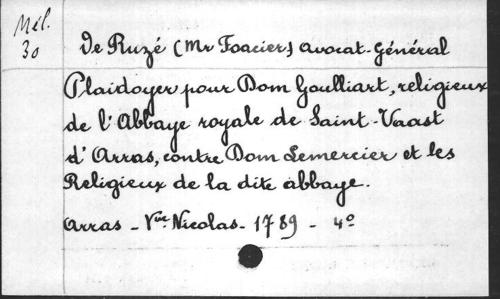 Mél.
30
De Ruzé (Mr Foacier) avocat-général
Plaidoyer pour Dom Goulliart, religieux
de l'Abbaye royale de Saint-Vaast
d'Arras, contre Dom Lemercier et les
Religieux de la dite abbaye.
Arras - Vve Nicolas - 1789 - 4º